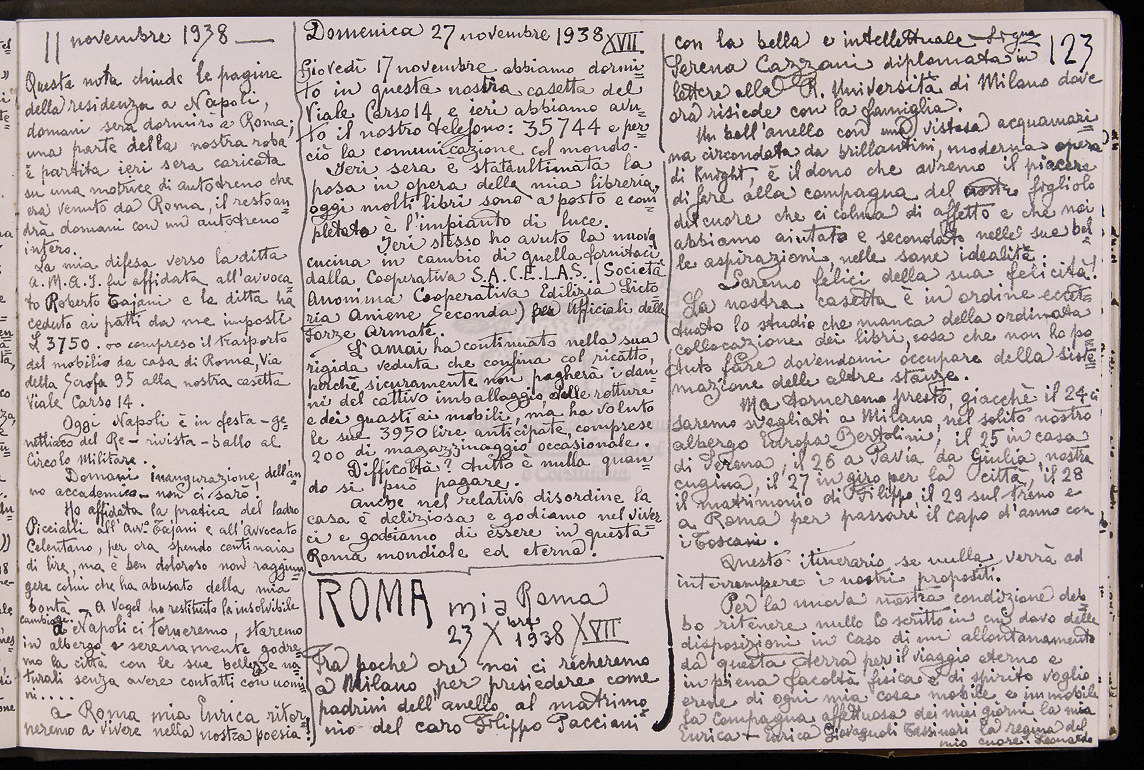 11 novembre 1938
Questa nota chiude le pagine
della residenza a Napoli,
domani sera dormirò a Roma;
una parte della nostra roba
è partita ieri sera caricata
su una motrice di autotreno che
era venuto da Roma, il restoan=
drà domani con un autotreno
intero.
La mia difesa verso la ditta
A.M.A.I. fu affidata all'avvoca=
to Roberto Tajani e la ditta ha
ceduto ai patti da me imposti
£ 3750.00 compreso il trasporto
del mobilio da casa di Roma, Via
della Scrofa 95 alla nostra casetta
Viale Carso 14.
Oggi Napoli è in festa - ge=
netliaco del Re - rivista - ballo al
Circolo Militare..
Domani inaugurazione dell'an=
no accademico - non ci sarò!
Ho affidata la pratica del ladro
Piccialli all'Avv. Tajani e all'Avvocato
Celentano, per ora spendo centinaia
di lire, ma è ben doloroso non raggiun=
gere colui che ha abusato della mia
bontà - a Vogel ho restituito la insolvibile
cambiale.
A Napoli ci torneremo, staremo
in albergo e serenamente godre=
mo la città con le sue bellezze na=
turali senza avere contatti con uomi=
ni.....
A Roma mia Enrica ritor=
neremo a vivere nella nostra poesia!
Domenica 27 novembre 1938 XVII
Giovedì 17 novembre abbiamo dormi=
to in questa nostra casetta del
Viale Carso 14 e ieri abbiamo avu=
to il nostro telefono: 35744 e per=
ciò la comunicazione col mondo.
Ieri sera è stata ultimata la
posa in opera della mia libreria,
oggi molti libri sono a posto e com=
pletato è l'impianto di luce.
Ieri stesso ho avuto la nuova
cucina in cambio di quella fornitaci
dalla Cooperativa S.A.C.E.L.A.S. (Società
Anonima Cooperativa Edilizia Licto=
ria Aniene Seconda) per Ufficiali delle
Forze Armate.
L'amai ha continuato nella sua
rigida veduta che confina col ricatto,
perchè sicuramente non pagherà i dan=
ni del cattivo imballaggio delle rotture
e dei guasti ai mobili, ma ha voluto
le sue 3950 lire anticipate, comprese
200 di magazzinaggio occasionale.
Difficoltà? tutto è nulla quan=
do si può pagare.
Anche nel relativo disordine la
casa è deliziosa e godiamo nel viver=
ci e godiamo di essere in questa
Roma mondiale ed eterna!
ROMA mia Roma
23 Xbre 1938 XVII
Fra poche ore noi ci recheremo
a Milano per presiedere come
padrini dell'anello al matrimo=
nio del caro Filippo Pacciani
123
con la bella e intellettuale Signa
Serena Cazzani diplomata in
lettere alla R. Università di Milano dove
ora risiede con la famiglia.
Un bell'anello con una vistosa acquamari=
na circondata da brillantini, moderna opera
di Knight, è il dono che avremo il piacere
di fare alla compagna del nostro figliolo
del cuore che ci colma di affetto e che noi
abbiamo aiutato e secondato nelle sue bel=
le aspirazioni, nelle sane idealità.
Saremo felici della sua felicità!
La nostra casetta è in ordine eccet=
tuato lo studio che manca della ordinata
collocazione dei libri, cosa che non ho po=
tuto fare dovendomi occupare della siste=
mazione delle altre stanze.
Ma torneremo presto, giacchè il 24 ci
saremo svegliati a Milano nel solito nostro
albergo Europa Bertolini, il 25 in casa
di Serena, il 26 a Pavia da Giulia, nostra
cugina, il 27 in giro per la città, il 28
il matrimonio di Filippo, il 29 sul treno e
a Roma per passare il capo d'anno con
i Toscani.
Questo itinerario se nulla verrà ad
interrompere i nostri propositi.
Per la nuova nostra condizione deb=
bo ritenere nullo lo scritto in cui davo delle
disposizioni in caso di un allontanamento
da questa terra per il viaggio eterno e
in piena facoltà fisica e di spirito voglio
erede di ogni mia cosa mobile e immobile
la compagna affettuosa dei miei giorni la mia
Enrica - Enrica Giovagnoli Tassinari la regina del
mio cuore. Leonardo